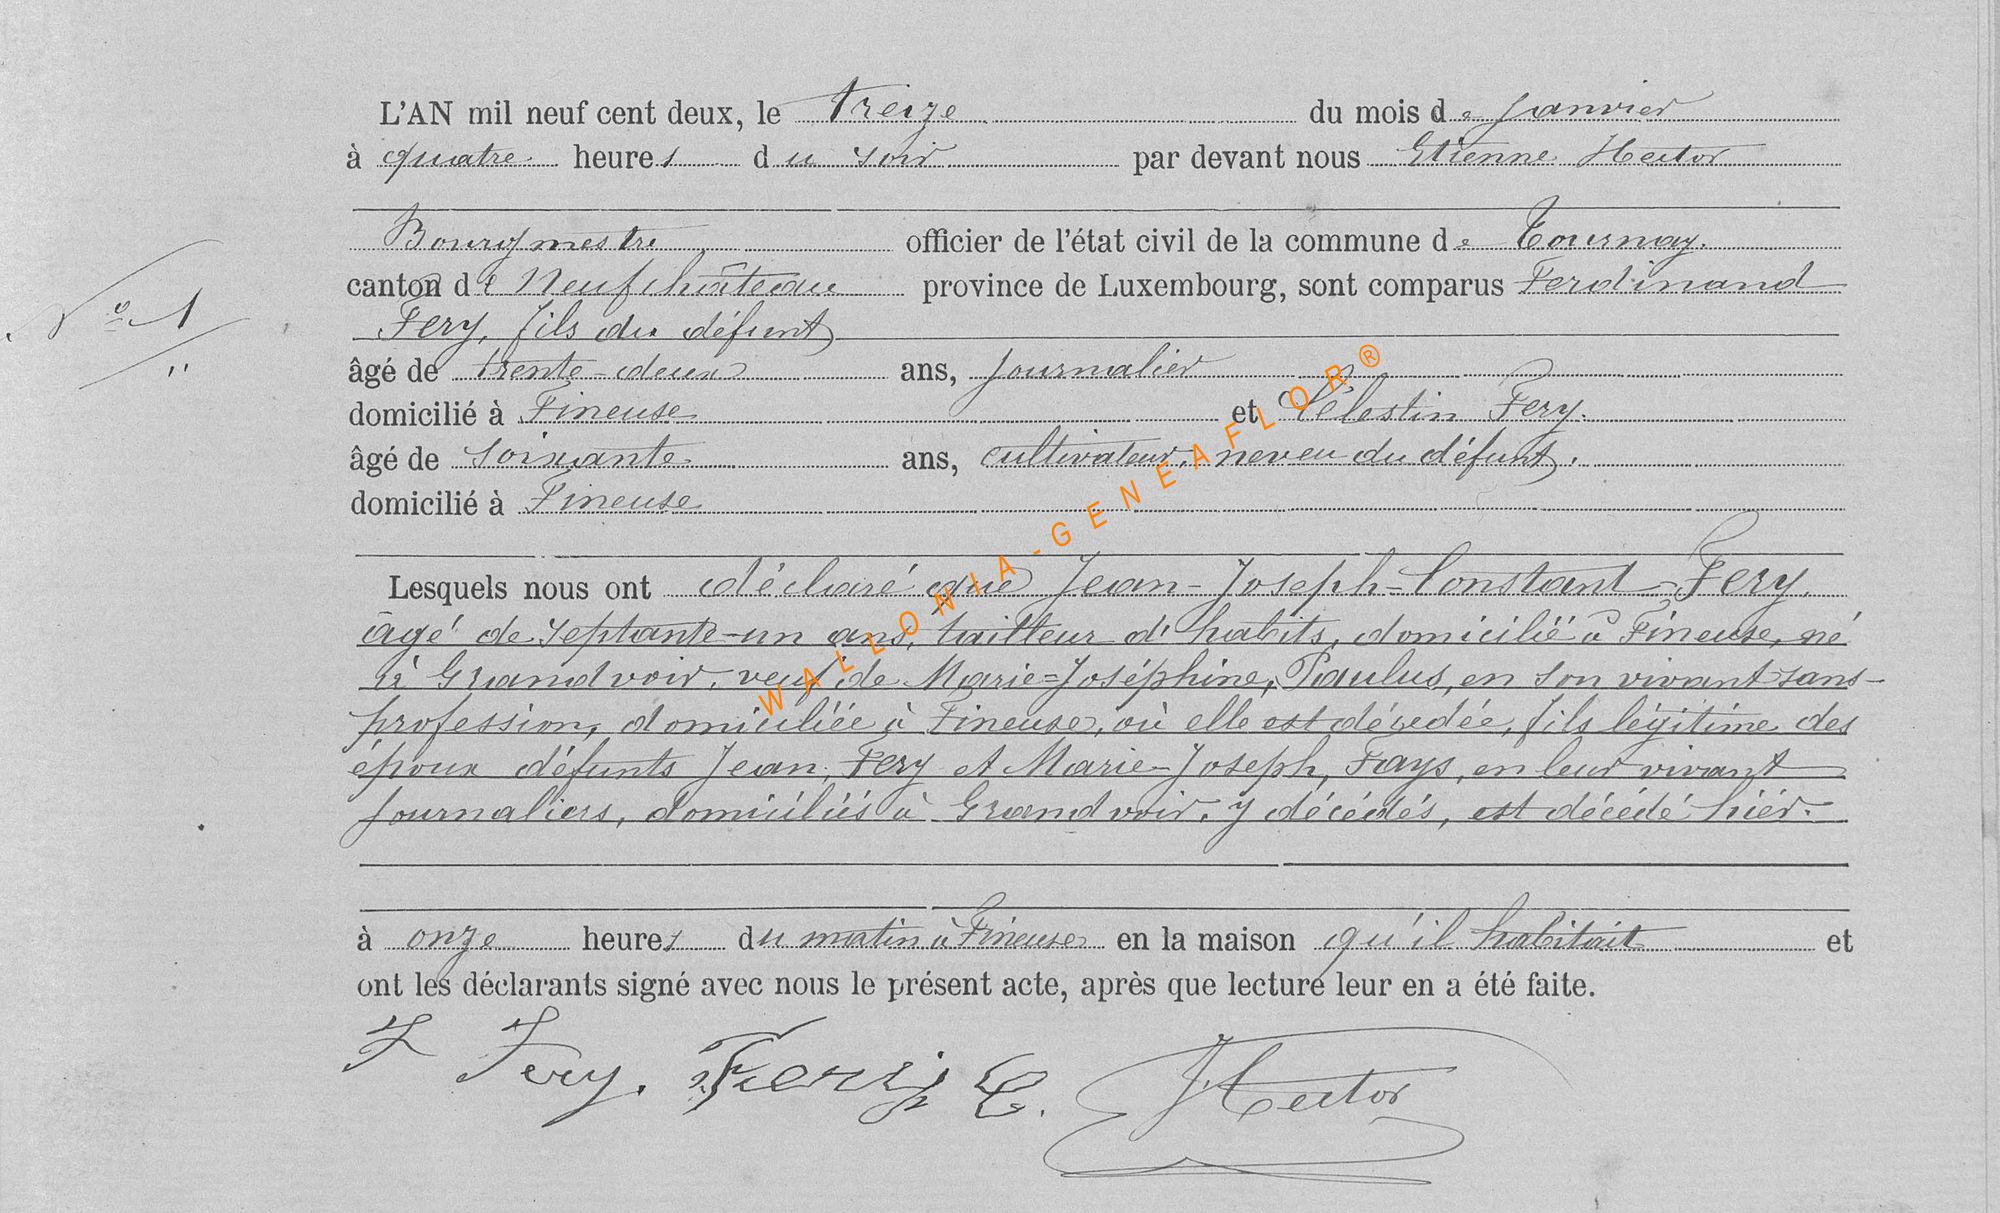 L'AN mil neuf cent deux, le treize du mois de Janvier
à quatre heures du soir par devant nous Etienne Hector
Bourgmestre officier de l'état civil de la commune de Tournay.
canton de Neufchâteau province de Luxembourg, sont comparus Ferdinand
N° 1
Fery, fils du défunt
âgé de trente-deux ans, journalier
domicilié à Fineuse et Célestin Fery.
âgé de soixante ans, cultivateur, neveu du défunt.
domicilié à Fineuse
Lesquels nous ont déclaré que Jean-Joseph-Constant Fery,
âgé de septante-un ans, tailleur d'habits, domicilié à Fineuse, né
à Grandvoir, veuf de Marie-Joséphine, Paulus, en son vivant sans-
profession, domiciliée à Fineuse, où elle est décédée, fils légitime des
époux défunts Jean, Fery et Marie-Joseph, Fays, en leur vivant
journaliers, domiciliés à Grandvoir, y décédés, est décédé hier.
à onze heures du matin à Fineuse en la maison qu'il habitait et
ont les déclarants signé avec nous le présent acte, après que lecture leur en a été faite.
F Fery. Fery C. Hector
WALLONIA-GENEAFLOR®